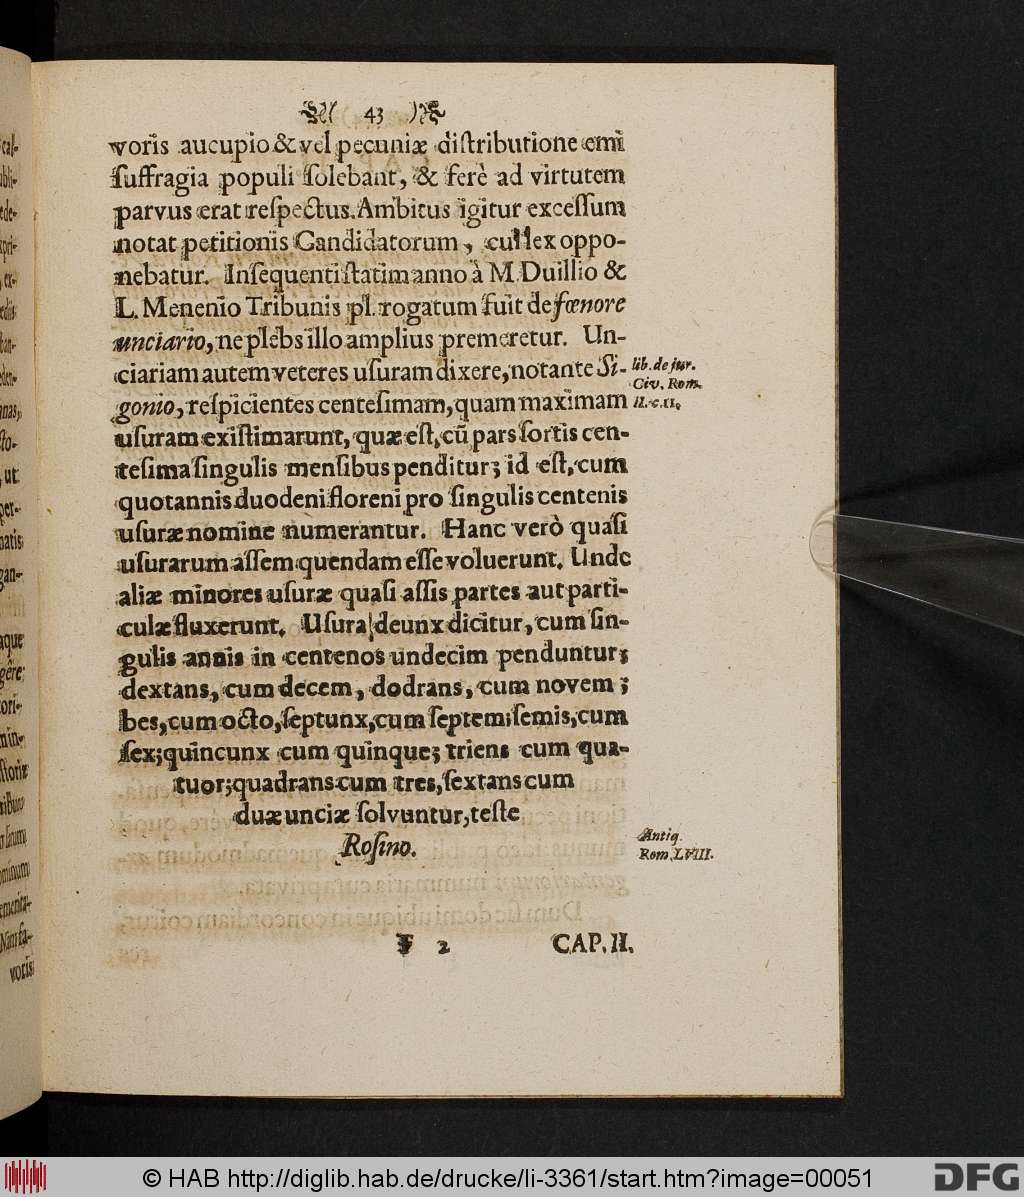 43
voris aucupio & vel pecuniæ distributione emi
ſuffragia populi ſolebant, & ferè ad virtutem
parvus erat reſpectus. Ambitus igitur exceſſum
notat petitionis Candidatorum, cui lex oppo-
nebatur. Inſequenti ſtatim anno à M. Duillio &
L. Menenio Tribunis pl. rogatum fuit de fœnore
unciario, ne plebs illo amplius premeretur. Un-
ciariam autem veteres uſuram dixere, notante Si-
lib. de jur.
Civ. Rom.
II. c. II.
gonio, reſpicientes centeſimam, quam maximam
uſuram exiſtimarunt, quæ eſt, cū pars ſortis cen-
teſima ſingulis menſibus penditur; id eſt, cum
quotannis duodeni floreni pro ſingulis centenis
uſuræ nomine numerantur. Hanc verò quaſi
uſurarum aſſem quendam eſſe voluerunt. Unde
aliæ minores uſuræ quaſi aſſis partes aut parti-
culæ fluxerunt. Uſura deunx dicitur, cum ſin-
gulis annis in centenos undecim penduntur;
dextans, cum decem, dodrans, cum novem;
bes, cum octo, ſeptunx, cum ſeptem; ſemis, cum
ſex; quincunx cum quinque; triens cum qua-
tuor; quadrans cum tres, ſextans cum
duæ unciæ ſolvuntur, teſte
Roſino.
Antiq.
Rom. L. VIII.
F 2 CAP. II.
voris
© HAB http://diglib.hab.de/drucke/li-3361/start.htm?image=00051
DFG